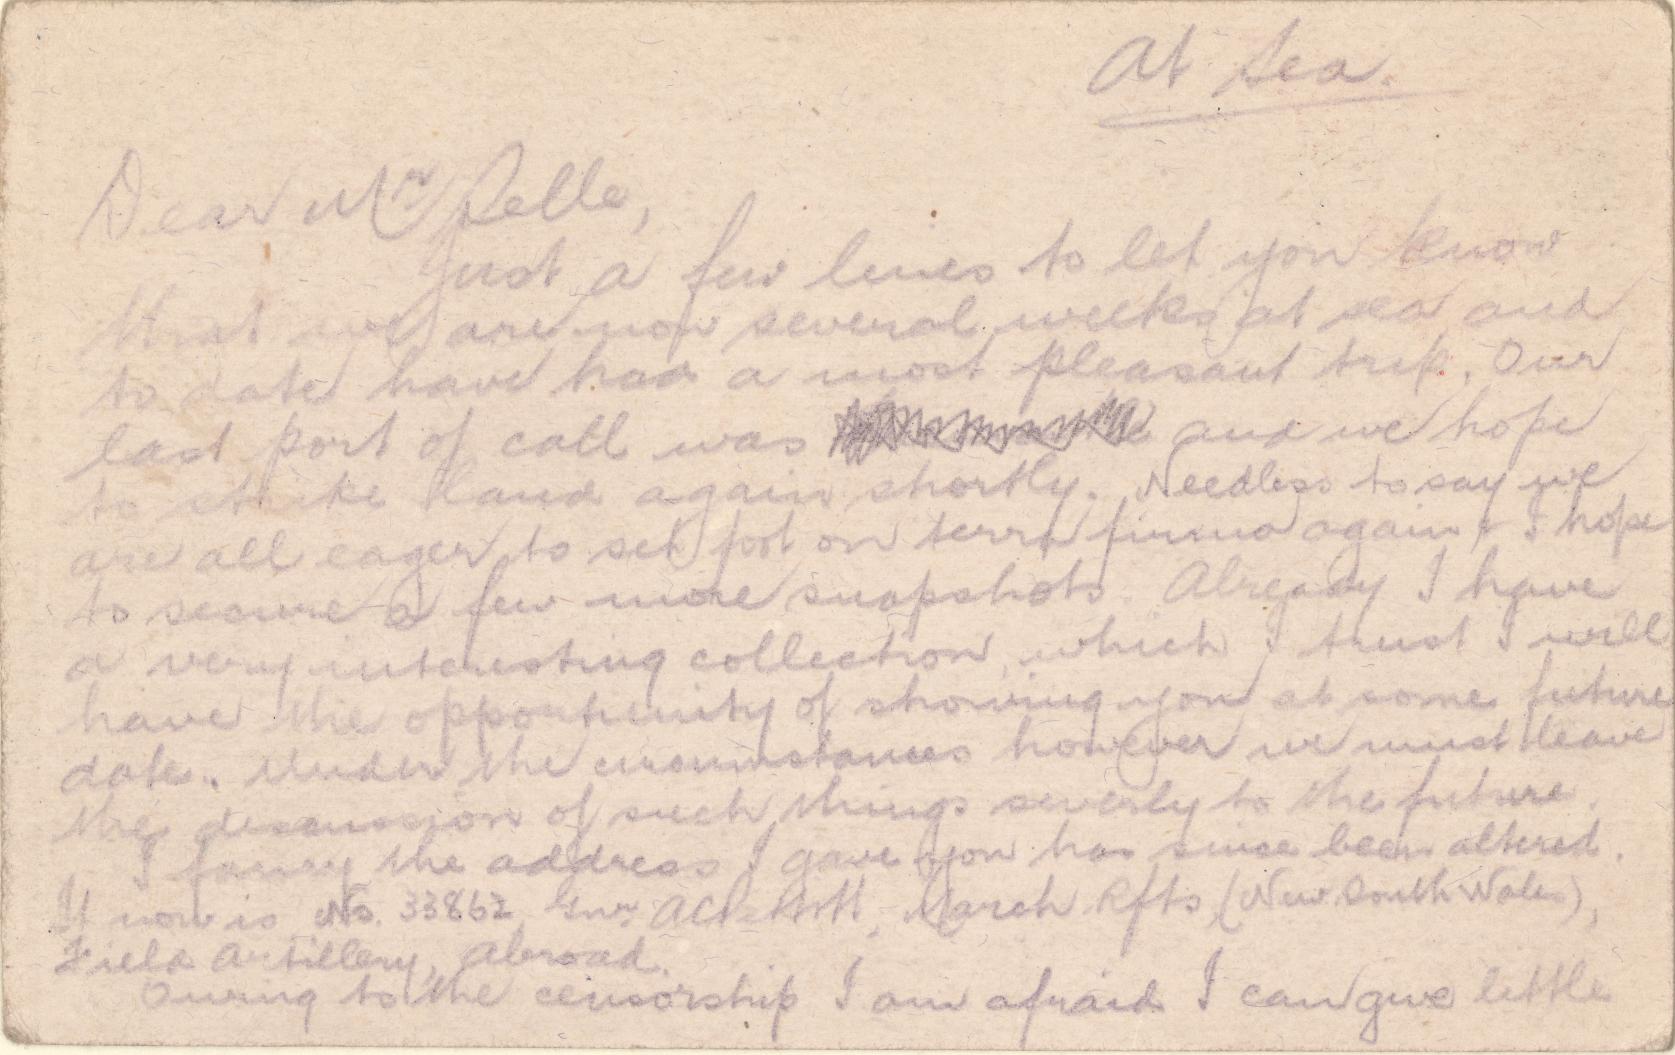 At Sea.
Dear Mr Pelle,
Just a few lines to let you know
that we are now several weeks at sea and
to date have had a most pleasant trip. Our
last port of call was and we hope
to strike land again shortly. Needless to say we
are all eager to set foot on terra firma again & I hope
to secure a few more snapshots. Already I have
a very interesting collection, which I trust I will
have the opportunity of showing you at some future
date. Under the circumstances however we must leave
the discussion of such things severly to the future.
I fancy the address I gave you has since been altered.
It now is No. 33862 Gnr March Rfts (New South Wales),
Field Artillery, Abroad.
Owing to the censorship I am afraid I can give little